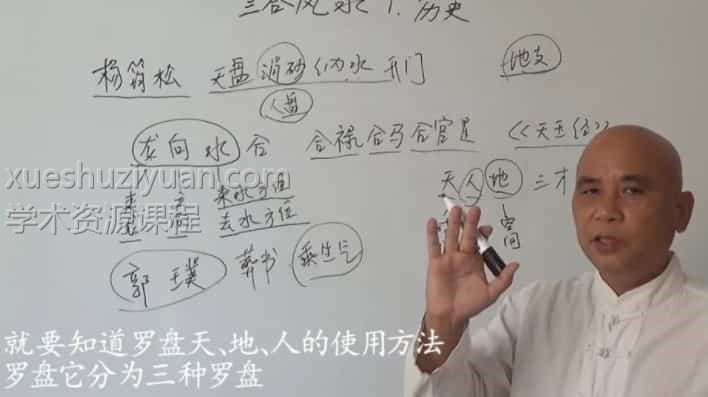 三合风水 1. 历史
杨筠松 天盘消砂纳水 开门 地支
人盘
龙向水合 合禄合马合官星 《天玉经》
xueshuziyuan.com 来水方位 天人地三才
学术资源课程 去水方位 空间
郭璞 葬书 乘生气
就要知道罗盘天、地、人的使用方法
罗盘它分为三种罗盘